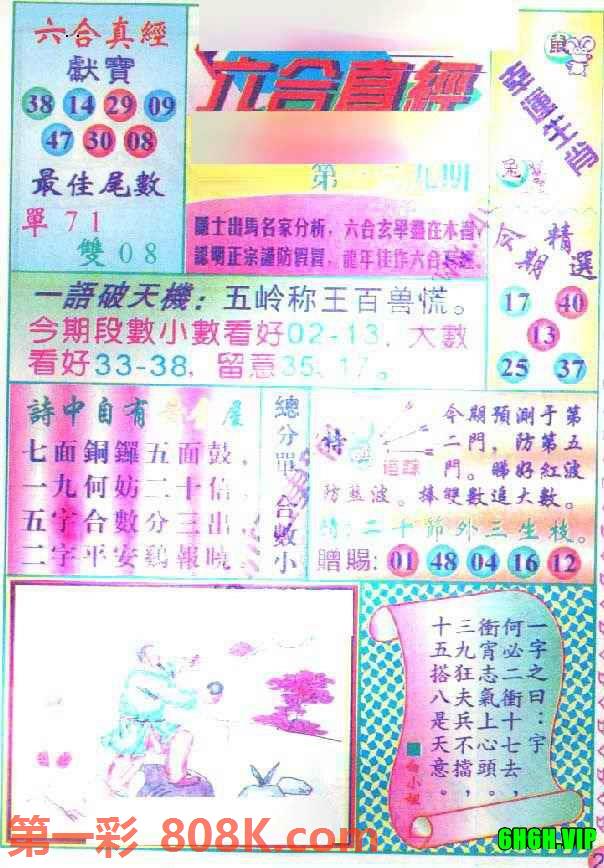 六合真經
獻寶
38 14 29 09
47 30 08
最佳尾數
單 71
雙 08
六合真經
鼠
幸運生肖
兔
隱士出馬名家分析，六合玄學盡在本
認明正宗謹防假冒，龍年佳作六合真經
今期
精選
17 40
13
25 37
一語破天機：五岭称王百兽慌。
今期段數小數看好02-13，大數
看好33-38，留意35、17。
詩中自有
七面銅鑼五面鼓，
一九何妨二十倍，
五字合數分三出，
二字平安鷄報曉。
總分單
合數小
特
追踪
今期預測于第
二門，防第五
門。睇好紅波
防藍波。捧雙數追大數。
二十節外三生枝。
贈賜: 01 48 04 16 12
一字之曰：字
何必二衝十七去，
衝宵志氣上心頭。
三九狂夫兵不擋，
十五搭八是天意。
小姐
第一彩 808K.com
6H6H·VIP